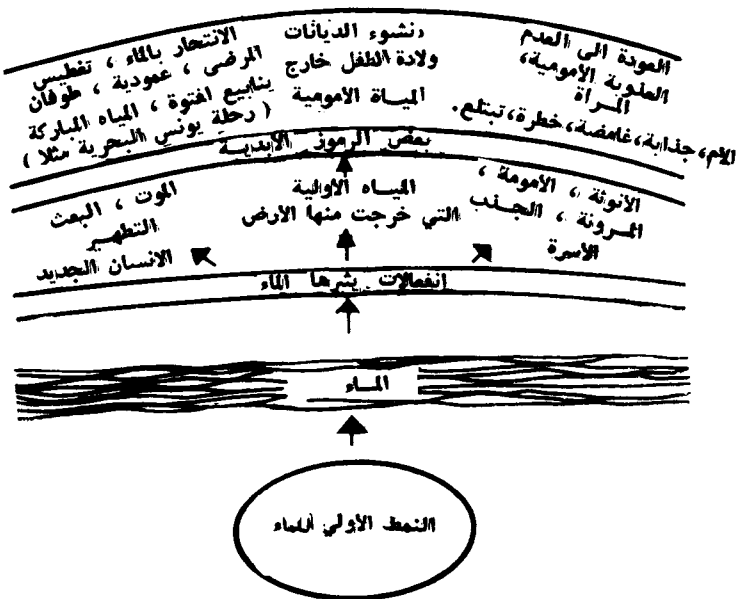 العودة الى العدم
العذوبة الأمومية،
المرأة
الام، جذابة، غامضة، خطرة، تبتلع.
نشوء الديانات
ولادة الطفل خارج
المياة الأمومية
الانتحار بالماء ، تغطيس
المرضى ، عمودية ، طوفان
ينابيع الفتوة ، المياه المباركة
( رحلة يونس البحرية مثلا )
بعض الرموز الأبدية
الأنوثة ، الأمومة ،
المرونة ، الجذب
الأسرة
المياه الأولية
التي خرجت منها الأرض
الموت ، البعث
التطهير
الانسان الجديد
إنفعالات يثرها الماء
الماء
النمط الأولي للماء